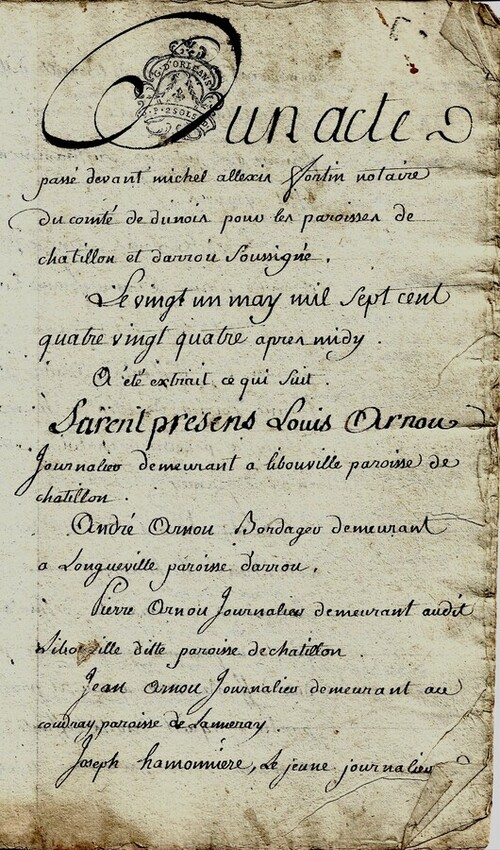 G. D'ORLEANS
P. 2 SOLS
D'un acte
passé devant michel allexis fortin notaire
du comté de dunois pour les paroisses de
chatillon et darrou soussigné.
Le vingt un may mil sept cent
quatre vingt quatre apres midy.
A été extrait ce qui suit.
furent presens Louis Arnou
Journalier demeurant a libouville paroisse de
chatillon.
André Arnou Bordager demeurant
a Longueville paroisse darrou,
Pierre Arnou Journalier demeurant audit
Libouville ditte paroisse de chatillon.
Jean Arnou Journalier demeurant au
coudray paroisse de Lanneray.
Joseph hamonniere, Le jeune journalier